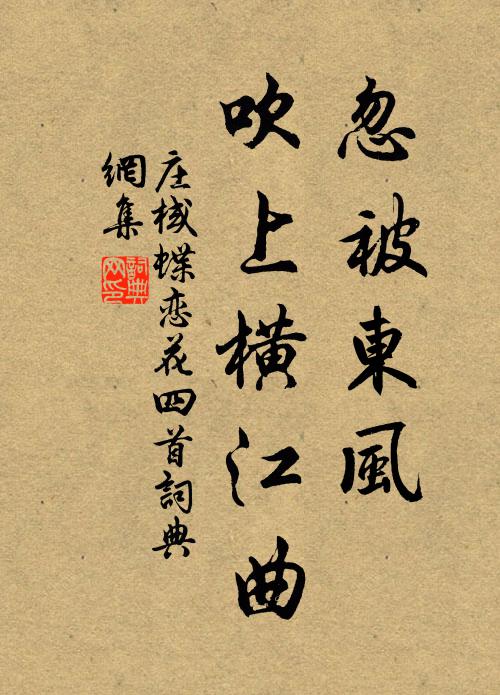 忽被東風
吹上橫江曲
庄棫蝶恋花四首詞典
網集
詞典
网印